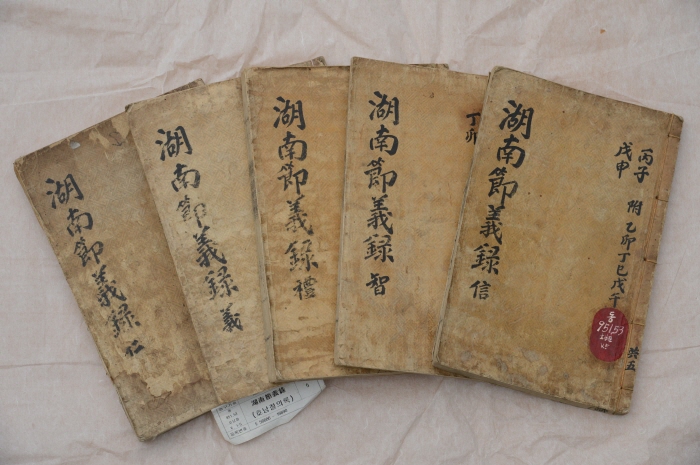 湖南節義錄 仁
湖南節義錄 義
湖南節義錄 禮
湖南節義錄 智
丁卯
湖南節義錄 信
丙子
戊申
附 乙卯 丁巳 戊午
共五
동
951.53
湖南節義錄
(호남절의록)